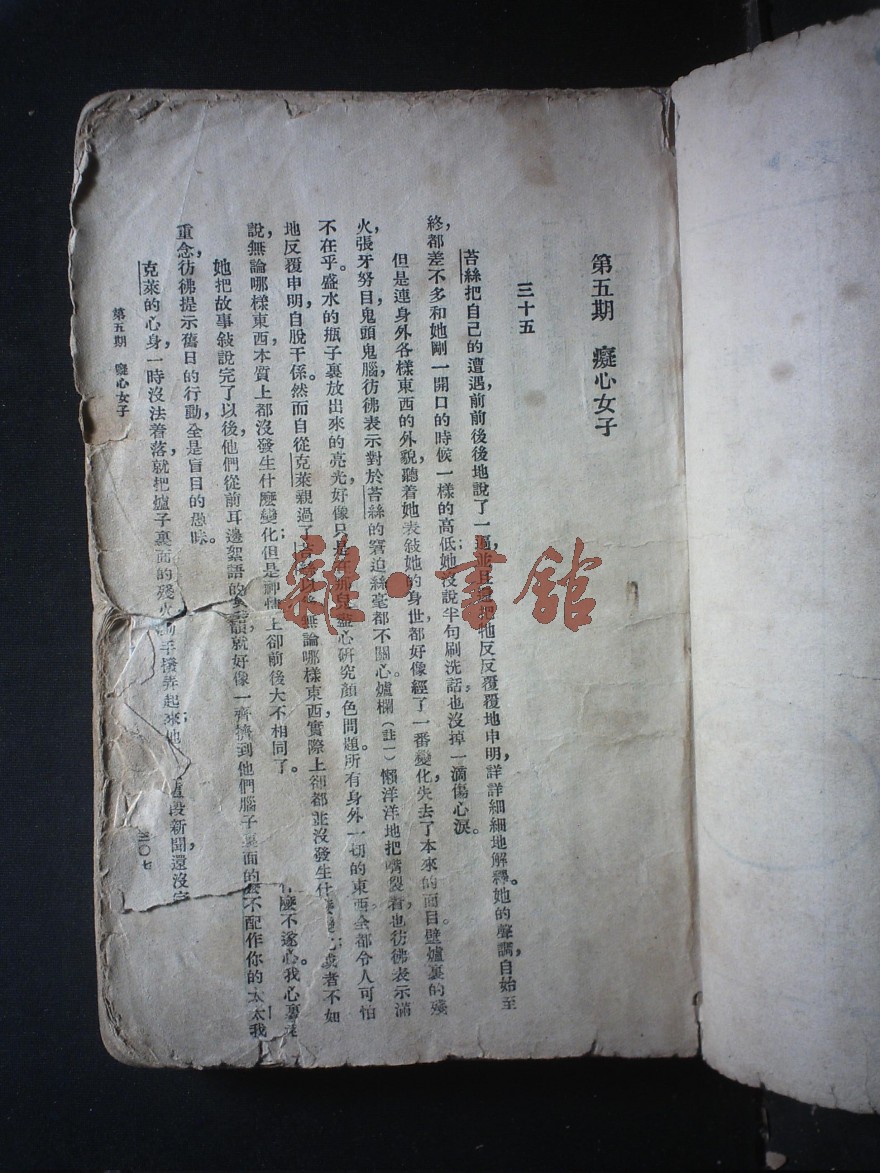 第五期　癡心女子
三十五
苔絲把自己的遭遇，前前後後地說了一遍，並且還把牠反反覆覆地申明，詳詳細細地解釋。她的聲調，自始至
終，都差不多和她剛一開口的時候一樣的高低；她沒說半句刷洗話，也沒掉一滴傷心淚。
但是連身外各樣東西的外貌，聽着她表敍她的身世，都好像經了一番變化，失去了本來的面目。壁爐裏的殘
火，張牙努目，鬼頭鬼腦，彷彿表示對於苔絲的窘迫，絲毫都不關心。爐欄（註一）懶洋洋地把嘴裂着，也彷彿表示滿
不在乎。盛水的瓶子裏放出來的亮光，好像只是在那兒盡心研究顏色問題。所有身外一切的東西，全都令人可怕
地反覆申明，自脫干係。然而自從克萊親過了苔絲以後，無論哪樣東西，實際上卻都並沒發生什麼變化；或者不如
說，無論哪樣東西，本質上都沒發生什麼變化；但是神情上卻前後大不相同了。
麼不遂心。我心裏
她把故事敍說完了以後，他們從前耳邊絮語的就好像一齊擠到他們腦子裏面的
不配作你的太太。我
重念，彷彿提示舊日的行動，全是盲目的愚昧。
克萊的心身，一時沒法着落，就把爐子裏面的殘火手撥弄起來；他段新聞，還沒
第五期　癡心女子
三〇七
雜·書館